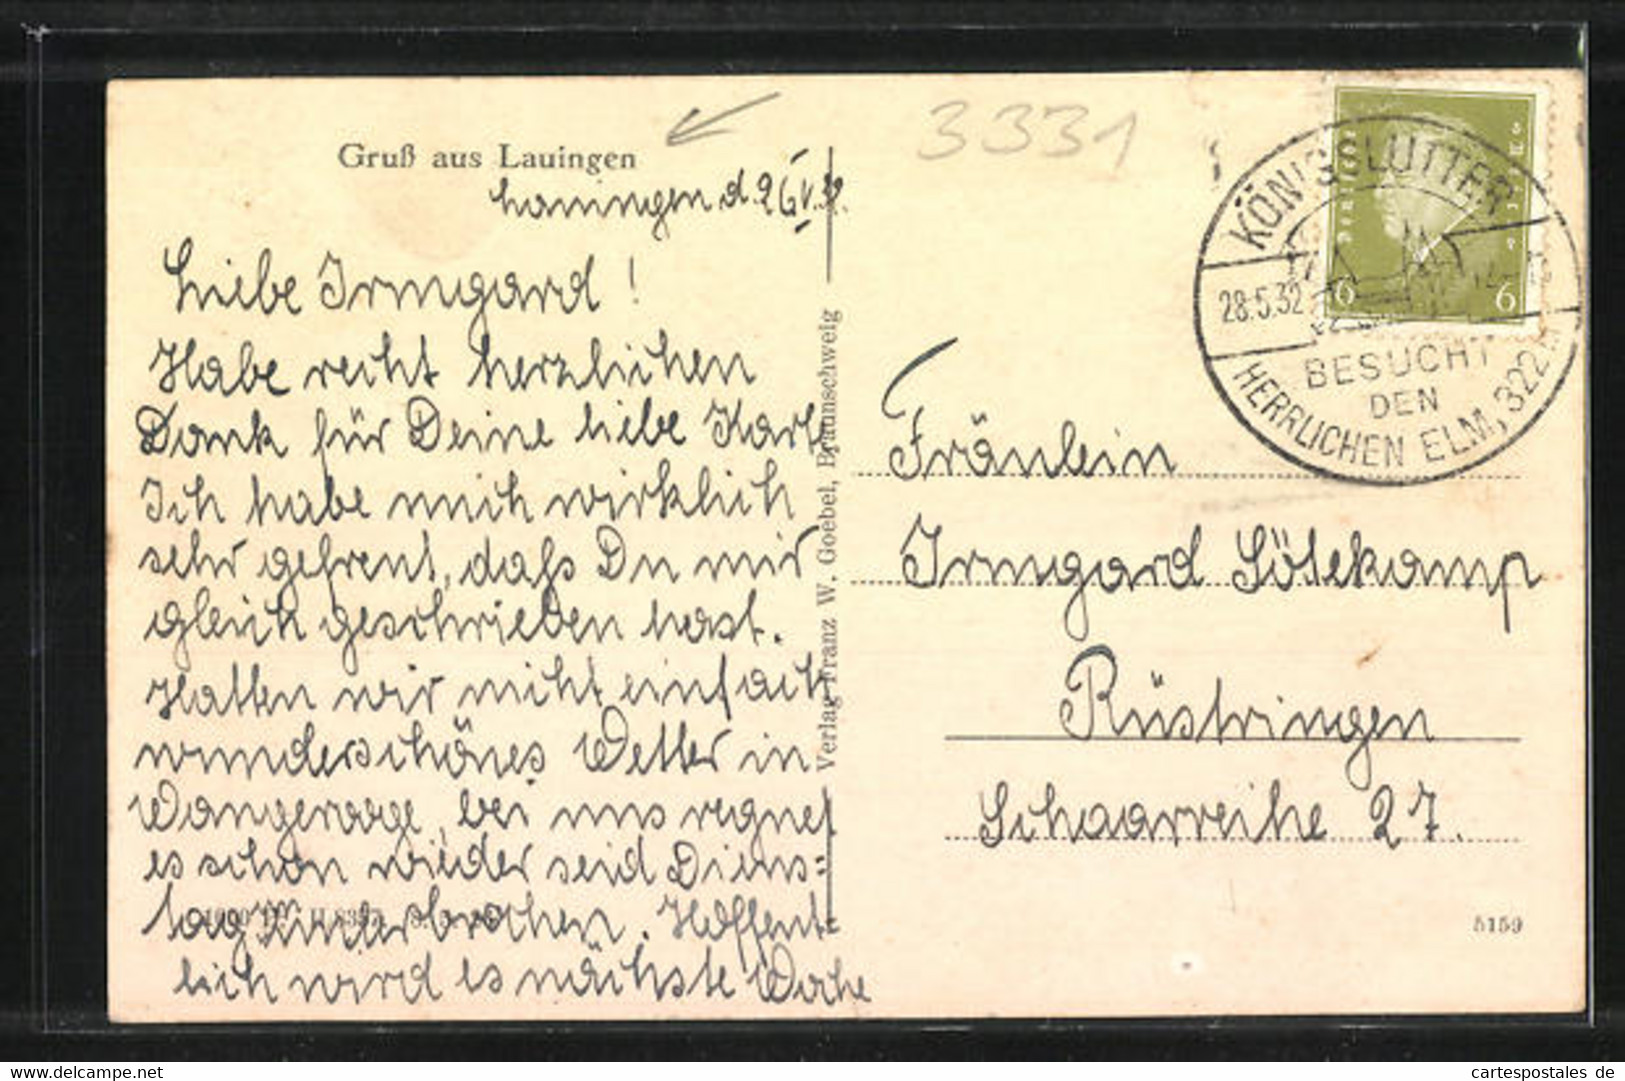 Gruß aus Lauingen
3331
Lauingen d. 26.V.32.
Liebe Irmgard!
Habe recht herzlichen
Dank für Deine liebe Karte
Ich habe mich wirklich
sehr gefreut, daß Du mir
gleich geschrieben hast.
Hatten wir nicht einfach
wunderschönes Wetter in
Wangerooge, bei uns regnet
es schon wieder seid Diens=
tag ununterbrochen. Hoffent=
lich wird es nächste Woche
Verlag Franz W. Goebel, Braunschweig
Deutsches Reich
6 6
KÖNIGSLUTTER
28.5.32
BESUCHT
DEN
HERRLICHEN ELM, 322
Fräulein
Irmgard Sötekamp
Rüstringen
Schaarreihe 27.
5159
cartespostales de
www.delcampe.net